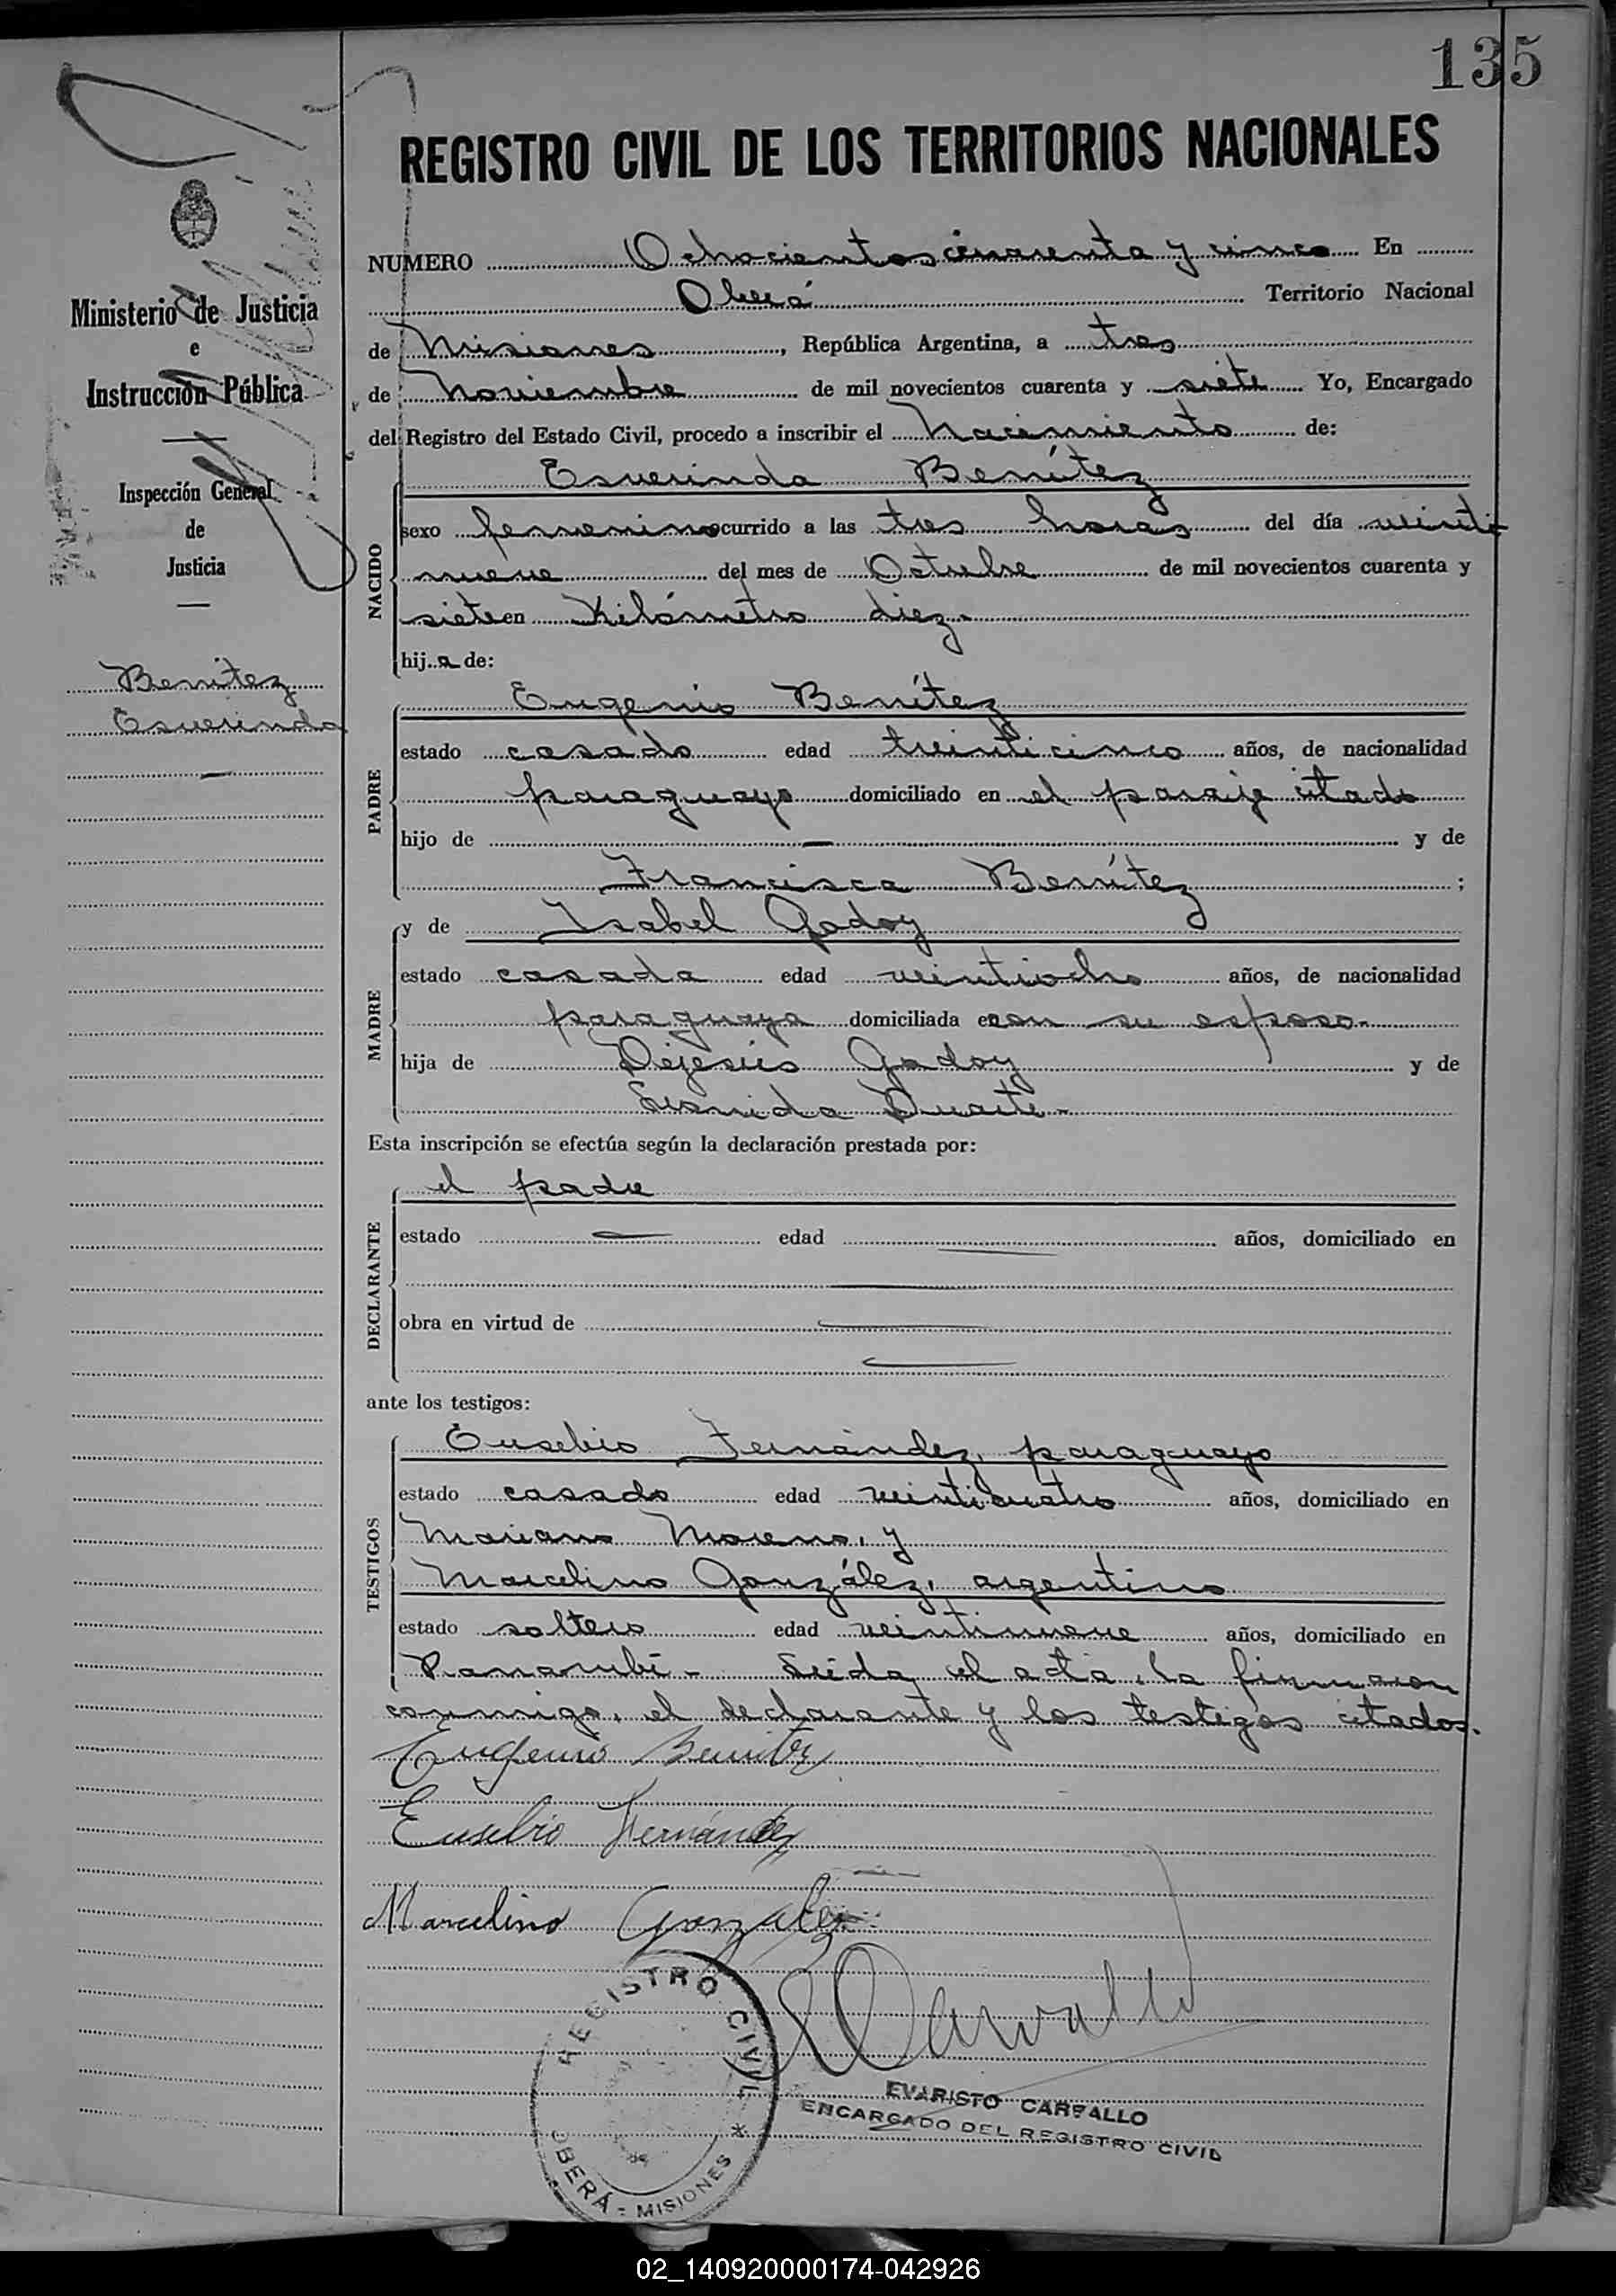 135
REGISTRO CIVIL DE LOS TERRITORIOS NACIONALES
Ministerio de Justicia
e
Instrucción Pública
Inspección General
de
Justicia
Benítez
Esverinda
NUMERO Ochocientos cincuenta y cinco En
Oberá Territorio Nacional
de Misiones, República Argentina, a tres
de Noviembre de mil novecientos cuarenta y siete Yo, Encargado
del Registro del Estado Civil, procedo a inscribir el Nacimiento de:
NACIDO
Esverinda Benítez
sexo femenino ocurrido a las tres horas del día veinti
nueve del mes de Octubre de mil novecientos cuarenta y
siete en Kilómetro diez.
hija de:
PADRE
Eugenio Benítez
estado casado edad treinticinco años, de nacionalidad
paraguayo domiciliado en el paraje citado
hijo de — y de
Francisca Benítez ;
MADRE
y de Isabel Godoy
estado casada edad veintiocho años, de nacionalidad
paraguaya domiciliada con su esposo.
hija de Dejesús Godoy y de
Duarte.
Esta inscripción se efectúa según la declaración prestada por:
DECLARANTE
el padre
estado — edad — años, domiciliado en
—
obra en virtud de —
—
ante los testigos:
TESTIGOS
Eusebio Fernández, paraguayo
estado casado edad veinticuatro años, domiciliado en
Mariano Moreno, y
Marcelino González, argentino
estado soltero edad veintinueve años, domiciliado en
Panambí - Leída el acta, la firmaron
conmigo, el declarante y los testigos citados.
Eugenio Benítez
Eusebio Fernández
Marcelino Gonzalez
Carvallo
REGISTRO CIVIL
OBERÁ - MISIONES
EVARISTO CARVALLO
ENCARGADO DEL REGISTRO CIVIL
02_140920000174-042926